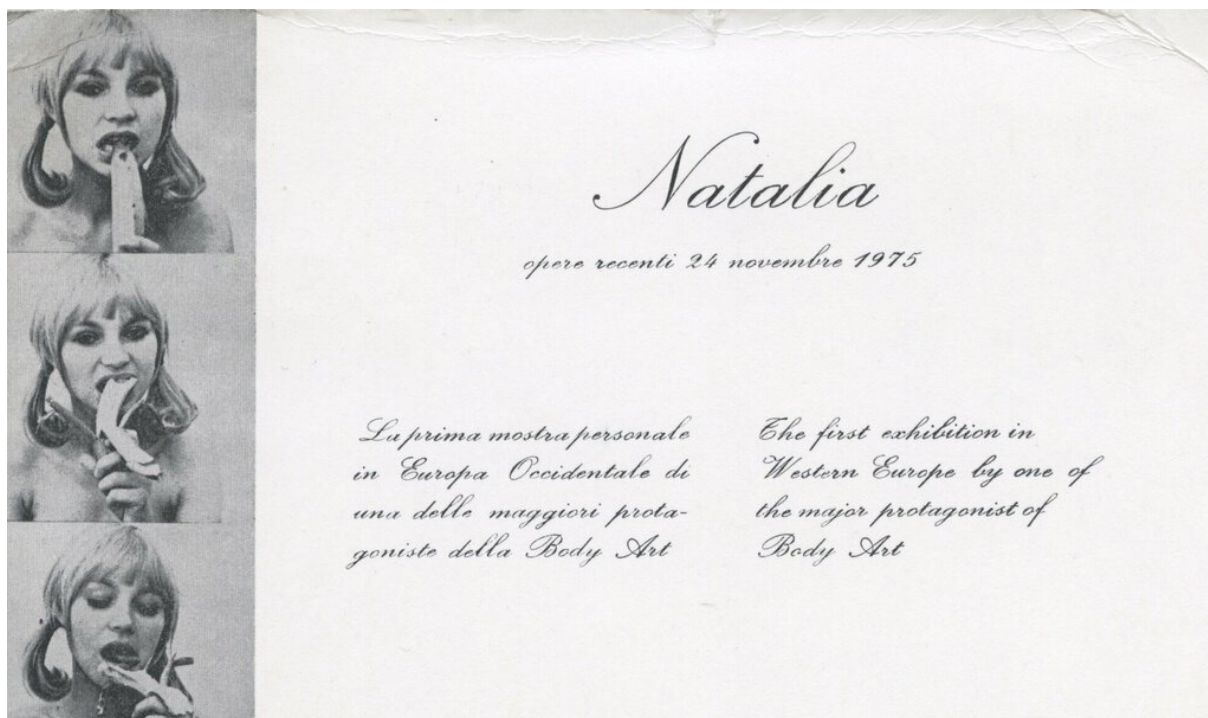 Natalia
opere recenti 24 novembre 1975
La prima mostra personale
in Europa Occidentale di
una delle maggiori prota-
goniste della Body Art
The first exhibition in
Western Europe by one of
the major protagonist of
Body Art